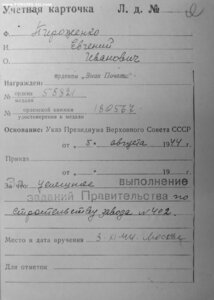 Учетная карточка Л. д. №
Ф. Пироженко
И. Евгений
О. Иванович
орденом "Знак Почета"
Награжден:
№ ордена
медали 58821
№ орденской книжки
удостоверения к медали 180567
Основание: Указ Президиума Верховного Совета СССР
от „5“ августа 1944 г.
Приказ
от „ “ 194 г.
За что успешное выполнение
заданий Правительства по
строительству завода №402.
Место и дата вручения 3.XI.44. Москва
Для отметок